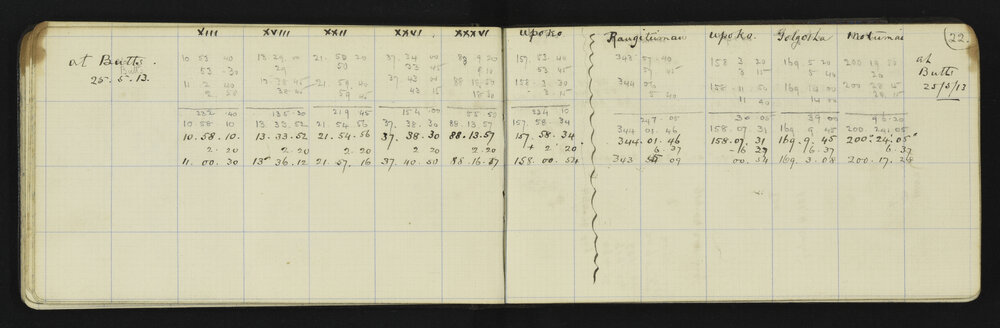 XIII XVIII XXII XXVI XXXVI Upoko Rangituman Upoko. Golgotha Motumai 22.
at Butts. 10 53 40 13.29.00 21.50 20 37.34 00 88 9.20 157.53.40 343.57.40 158 3.20 169.5 20 at
Butts 53 .30 29 50 33 45 9.10 53.45 37 45 3 15 5 40 20 Butts
25.5.13. 11 2 40 21.59.40 37.43 00 158.3.30 344 05 158.11 50 25/5/13
59 45 43 15 5 40 11 40 14 00
232 40 135.30 219 45 154 .00 55 50 234 10 247.05 30 05 39 00
10 58 10 13 33 52 21.54.56 37.38.30 88.13 57 157.58.34 344 01.46 158.07.31 169 9 45 200.24.05
10.58.10. 13.33.52 21.54.56 37.38.30 88.13.57 157.58.34 344.01.46 158.07.31 169.9.45 200.24.05
2.20 2.20 2.20 2.20 2.20 + 2.20 6.37 16 37 6.37
11.00.30 13 36.12 21.57.16 37.40.50 88.16.17 158.00.54 343 09 00.54 169.3.08 200.17.28